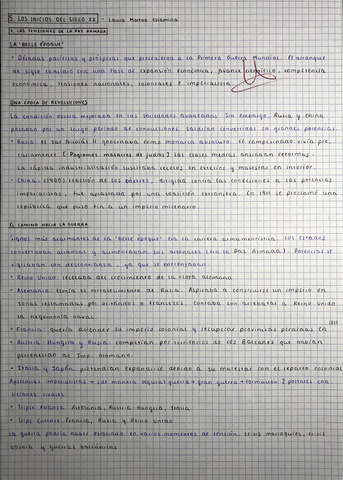 5. LOS INICIOS DEL SIGLO XX - Laura Moreno
1. LAS TENSIONES DE LA PAZ ARMADA
LA "BELLE ÉPOQUE"
• Décadas pacíficas y prósperas que precedieron a la Primera Guerra Mundial. El arranque
de siglo coincidió con una fase de expansión económica, avance científico, competencia
económica, tensiones nacionales, coloniales e imperialistas.
UNA ÉPOCA DE REVOLUCIONES
La condición obrera mejoraba en las sociedades avanzadas. Sin embargo, Rusia y China
pasaban por un largo periodo de convulsiones, saldrían convertidas en grandes potencias.
• Rusia: el zar Nicolás II gobernaba como monarca absoluto. El campesinado vivía
(Pogromos masacres de judíos) las clases medias ansiaban reformas.
La rápida industrialización suscitaba recelos en exterior y malestar en interior.
• China: (1900) rebelión de los bóxers, dirigida contra las concesiones a las potencias
imperialistas, fue aplastada por una coalición extranjera. En 1911 se proclamó una
república que puso fin a un imperio milenario.
EL CAMINO HACIA LA GUERRA
Signos más alarmantes de la "belle époque" era la carrera armamentística. Los estados
concertaban alianzas y aumentaban sus arsenales (era la Paz Armada). Potencias se
vigilaban con desconfianza, ya que se enfrentaban.
• Reino Unido: recelaba del crecimiento de la flota alemana
• Alemania: temía el fortalecimiento de Rusia. Aspiraba a construirse un imperio en
zonas reclamadas por británicos o franceses. Contaba con arrebatar a Reino Unido
la hegemonía naval.
• Francia: quería defender su imperio colonial y recuperar provincias perdidas en
• Austria-Hungría y Rusia: competían por territorios de los Balcanes que habían
pertenecido al Imp. otomano.
• Italia y Japón: pretendían expandirse debido a su malestar con el reparto colonial
Apetencias imperialistas → con manera segura guerra → gran guerra → formación 2 potentes coa-
liciones rivales:
• Triple Alianza: Alemania, Austria-Hungría, Italia
• Triple Entente: Francia, Rusia y Reino Unido
La guerra podría haber estallado en varios momentos de tensión, crisis marroquíes, crisis
bosnia y guerras balcánicas